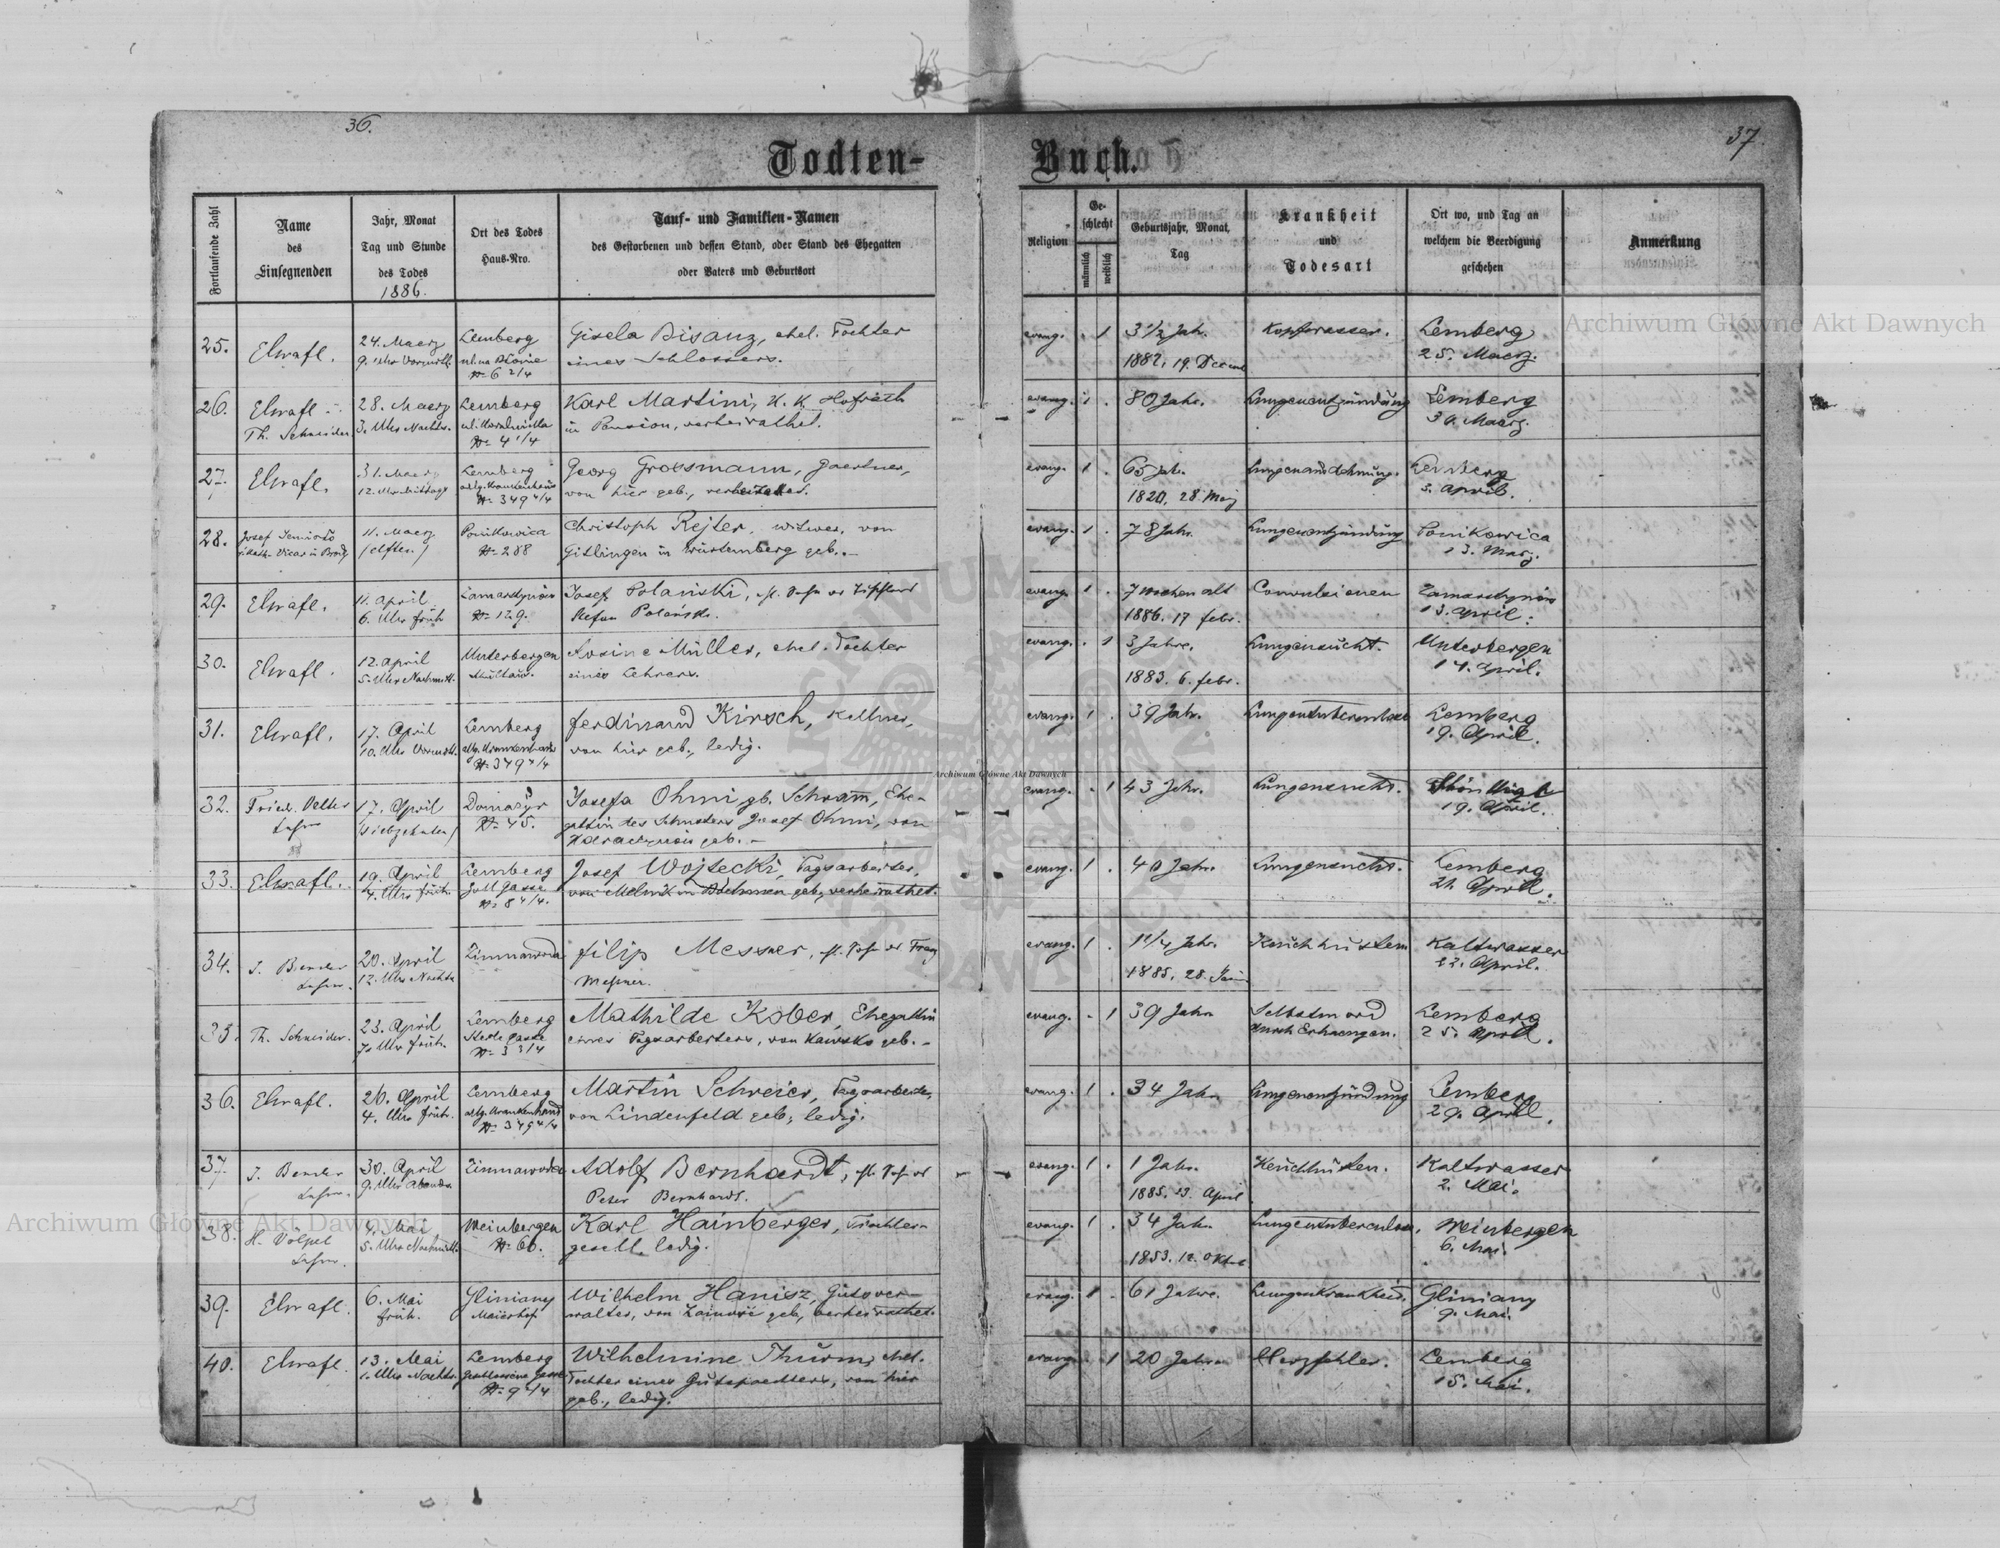 36.
37
Todten-
Buch.
Fortlaufende Zahl
Name
des
Einsegnenden
Jahr, Monat
Tag und Stunde
des Todes
1886.
Ort des Todes
Haus-Nro.
Tauf- und Familien-Namen
des Gestorbenen und dessen Stand, oder Stand des Ehegatten
oder Vaters und Geburtsort
Religion
Ge-
schlecht
männlich
weiblich
Geburtsjahr, Monat,
Tag
Krankheit
und
Todesart
Ort wo, und Tag an
welchem die Beerdigung
geschehen
Anmerkung
25.
24. Maerz
9. Uhr Vormitt.
Lemberg
ul. na Błonie
№ 6 2/4
Gisela Bisanz, ehel. Tochter
eines Schlossers.
evang. . 1
3 1/2 Jah.
1882, 19. Decemb
Kopfwasser.
Lemberg
25. Maerz.
26.
Th. Schneider
28. Maerz
3. Uhr Nachts.
Lemberg
№ 4 1/4
Karl Martini, K. K. Hofrath
in Pension, verheirathet.
evang. 1 .
80 Jahr.
Lungenentzündung
Lemberg
30. Maerz.
27.
31. Maerz
12. Uhr Mittags
Lemberg
allg. Krankenhaus
№ 349 4/4
Georg Grossmann, Gaertner,
von hier geb., verheirathet.
evang. 1 .
65 Jah.
1820, 28. Maerz
Lungenausdehnung.
Lemberg
April.
28.
Josef
11. Maerz
(elften)
Ponikowica
№ 288
Christoph Rejter, witwer, von
Gislingen in Würtemberg geb.-
evang. 1 .
78 Jahr.
Lungenentzündung
Ponikowica
13. Marz.
29.
11. April
6. Uhr früh
Zamarstynów
№ 129.
Josef Polański,
Stefan Polański.
evang. 1 .
7 Wochen alt
1886. 17 febr.
Convulsionen
Zamarstynów
13. April.
30.
12. April
5. Uhr Nachmitt.
Unterbergen
Schulhaus.
Rosine Müller, ehel. Tochter
eines Lehrers.
evang. . 1
3 Jahre.
1883. 6. febr.
Lungensucht.
Unterbergen
14. April.
31.
17. April
10. Uhr Vormitt.
Lemberg
allg. Krankenhaus
№ 349 4/4
Ferdinand Kirsch, Kellner,
von hier geb., ledig.
evang. 1 .
39 Jah.
Lungentuberculose
Lemberg
19. April.
32.
17. April
(siebzehnten)
Domażyr
№ 45.
Josefa Ohmi gb. Schram, Ehe-
gattin des Schusters Josef Ohmi, von
geb.-
evang. . 1
43 Jahr.
Lungensucht.
19. April.
33.
19. April
4. Uhr früh.
Lemberg
№ 8 4/4.
Josef Wojtecki, Tagsarbeiter,
von Melnik in Böhmen geb., verheirathet.
evang. 1 .
40 Jahr.
Lungensucht.
Lemberg
21. April.
34.
J. Bender
Lehrer.
20. April
12. Uhr Nachts
Zimnawoda
Filip Messner, Franz
Messner.
evang. 1 .
1 1/4 Jahr.
1885, 28.
Keichhusten
Kaltwasser
22. April.
35.
Th. Schneider.
23. April
7. Uhr früh.
Lemberg
№ 3 3/4
Mathilde Kober, Ehegattin
eines Tagsarbeiters, von geb.-
evang. - 1
39 Jahr
Selbstmord
durch Erhaengen.
Lemberg
25. April.
36.
26. April
4. Uhr früh.
Lemberg
allg. Krankenhaus
№ 349 4/4
Martin Schreier, Tagsarbeiter,
von Lindenfeld geb., ledig.
evang. 1 .
34 Jahr
Lungenentzündung
Lemberg
29. April.
37.
J. Bender
Lehrer.
30. April
9. Uhr Abends.
Zimnawoda
Adolf Bernhardt,
Peter Bernhardt.
evang. 1 .
1 Jahr.
1885. 23. April
Keichhusten.
Kaltwasser
2. Mai.
38.
H. Völpel
Lehrer.
4. Mai
5. Uhr Nachmitt.
Weinbergen
№ 66.
Karl Hainberger, Tischler-
gesell. ledig.
evang. 1 .
34 Jahr
1853. 12. Oktob.
Lungentuberculose.
Weinbergen
6. Mai.
39.
6. Mai
früh.
Gliniany
Maierhof
Wilhelm Hanisz, Gutsver-
walter, von geb., verheirathet.
evang. 1 -
61 Jahre.
Lungenkrankheit.
Gliniany
9. Mai.
40.
13. Mai
1. Uhr Nachts.
Lemberg
№ 9 4/4
Wilhelmine Thurm, ehel.
Tochter eines Gutspaechters, von hier
geb., ledig.
evang. . 1
20 Jahre
Herzfehler.
Lemberg
15. Mai.
Archiwum Główne Akt Dawnych
Archiwum Główne Akt Dawnych
Archiwum Główne Akt Dawnych